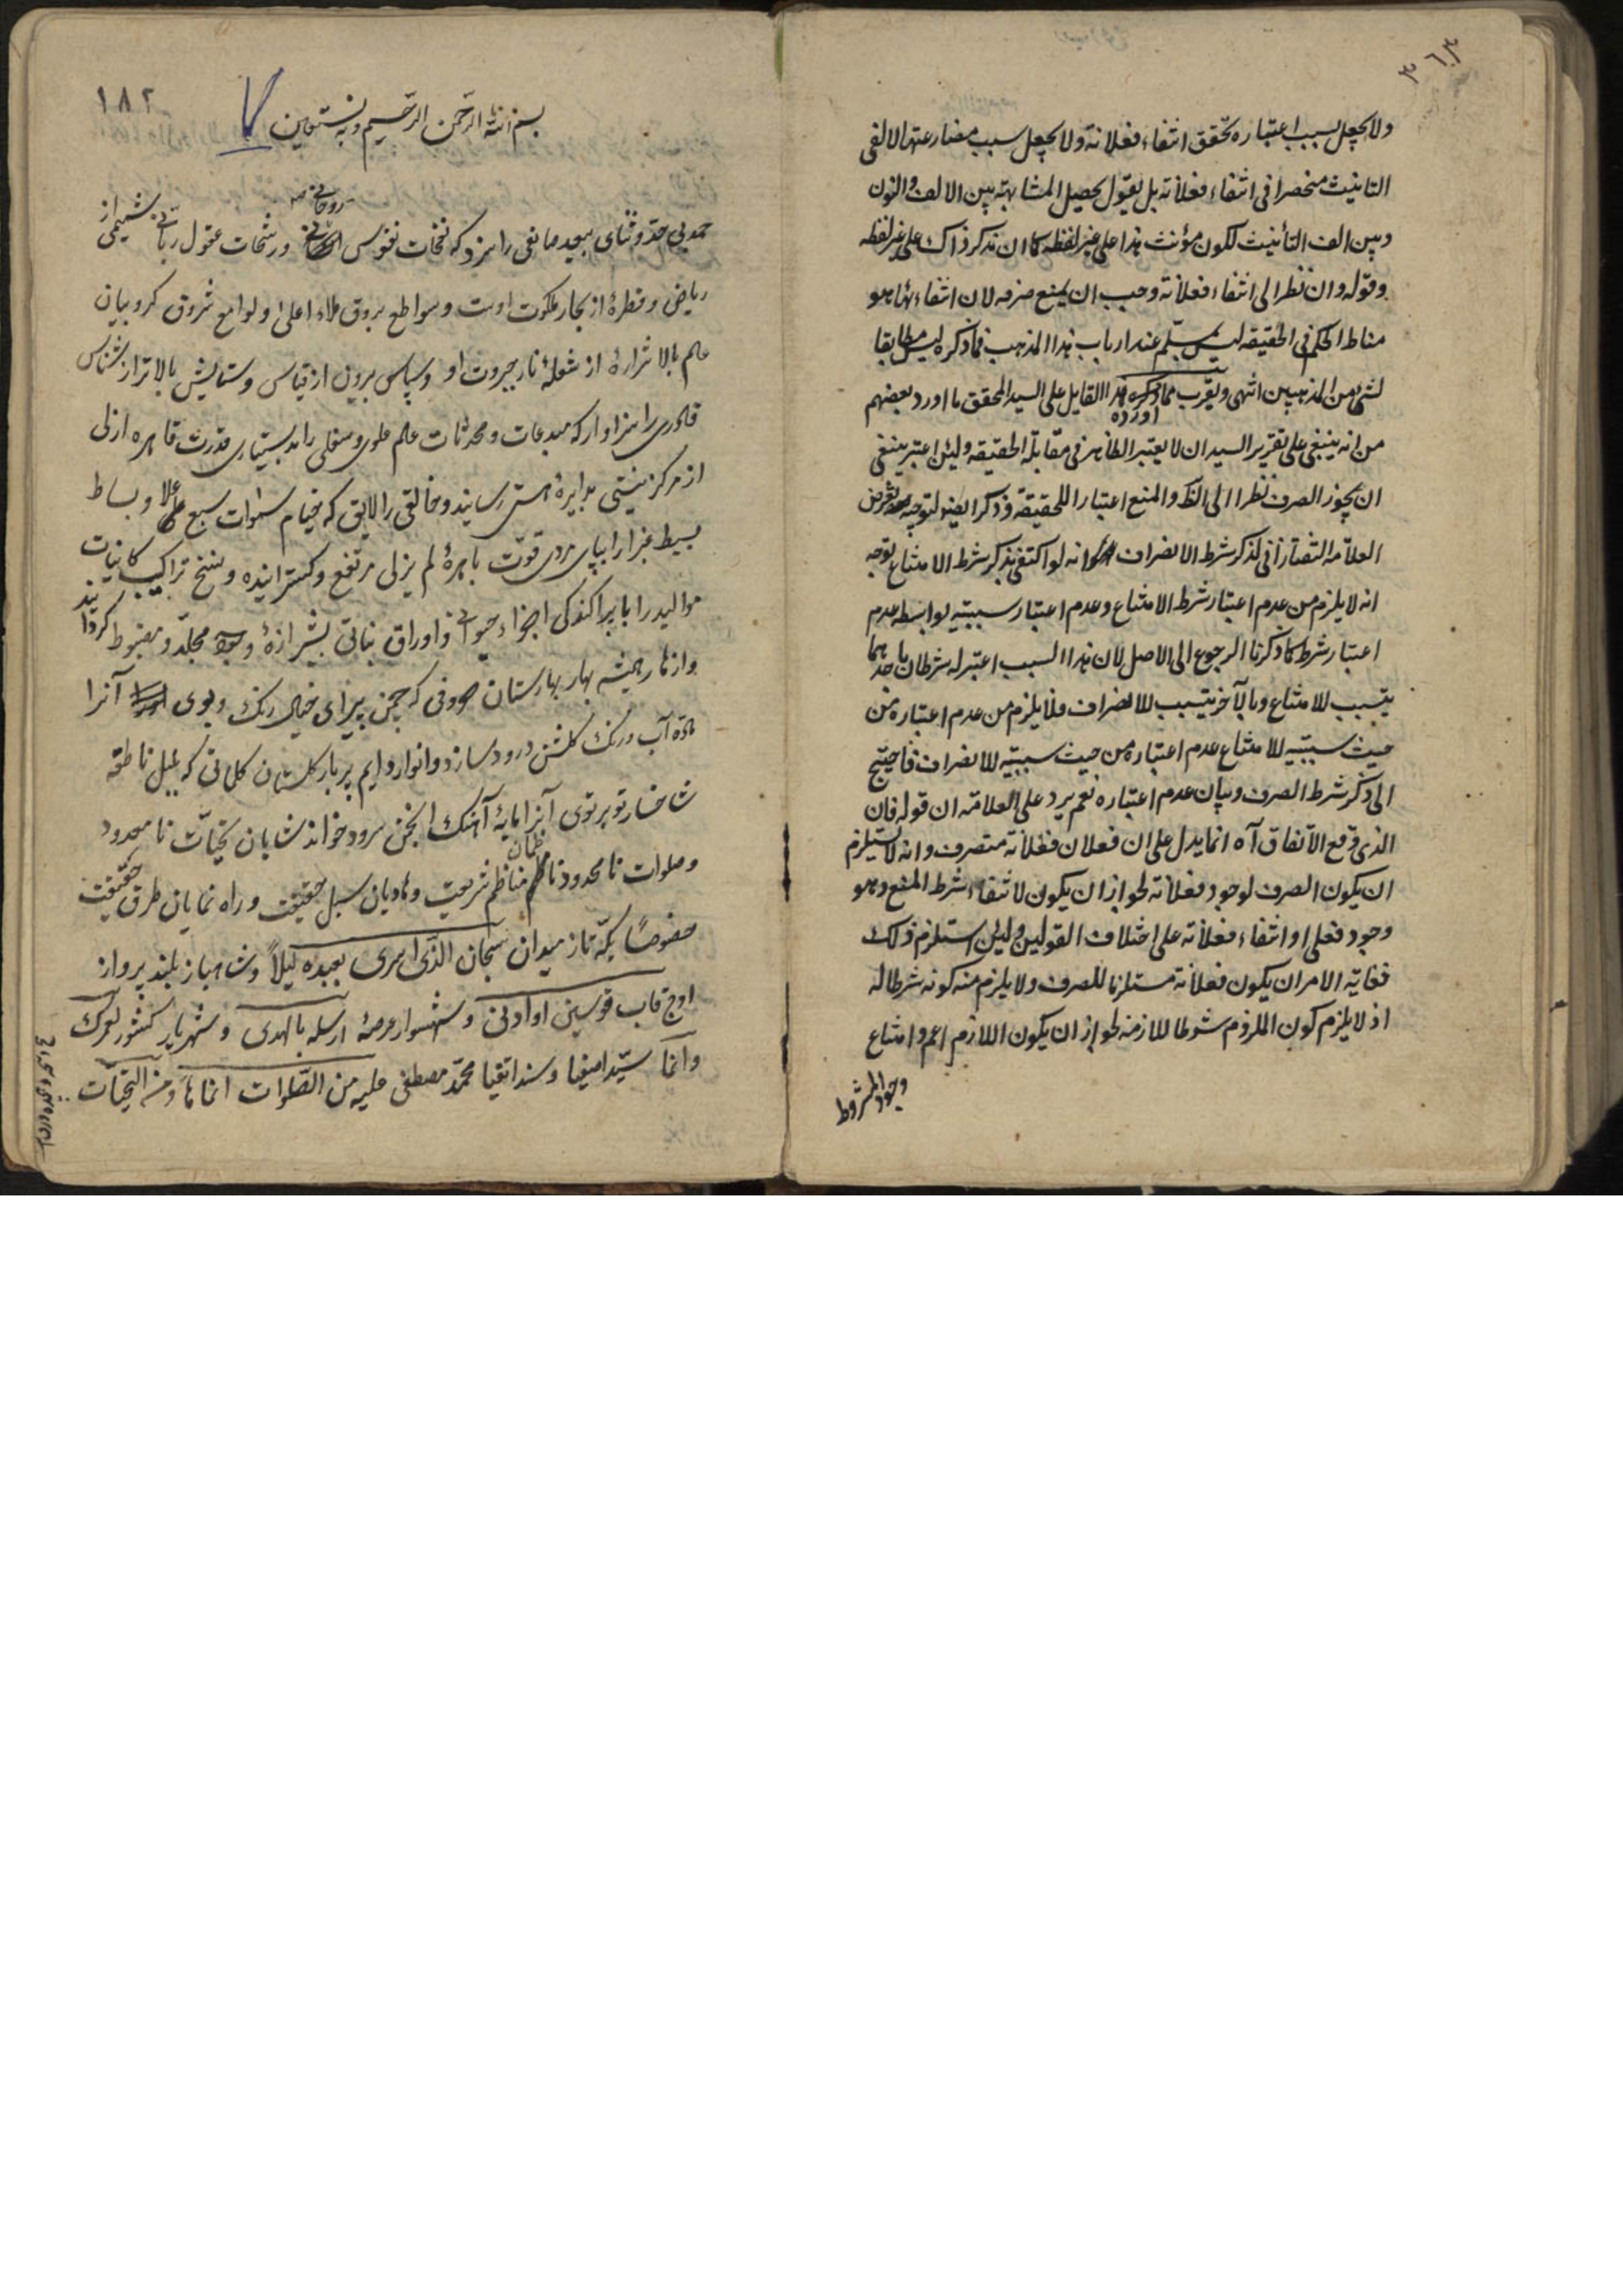 ولا يجعل بسبب اعتباره تحقق انتفاء فعلانة ولا يجعل سبب مضارعتها لالفى
التانيث منحصرا فى انتفاء فعلانة بل يقول يحصل المشابهة بين الالف والنون
وبين الف التأنيث لكون مؤنث هذا على غير لفظه كما ان مذكر ذاك على غير لفظه
وقوله وان نظر الى انتفاء فعلانة وجب ان يمنع صرفه لان انتفاءها هو
مناط الحكم فى الحقيقة ليس بمسلم عند ارباب هذا المذهب فما ذكره ليس مطابقا
لشئ من المذهبين انتهى ويقرب مما اورده هذا القايل على السيد المحقق ما اورد بعضهم
من انه ينبغى على تقرير السيد ان لا يعتبر الظاهر فى مقابلة الحقيقة ولئن اعتبر ينبغى
ان يجوز الصرف نظرا الى الظ والمنع اعتبارا للحقيقة وذكر ايضا لتوجيه تعرض
العلامة التفتازانى لذكر شرط الانصراف انه لو اكتفى بذكر شرط الامتناع توجه
انه لا يلزم من عدم اعتبار شرط الامتناع وعدم اعتبار سببيته بواسطة عدم
اعتبار شرط كما ذكرنا الرجوع الى الاصل لان هذا السبب اعتبر له شرطان باحدهما
يتسبب للامتناع وبالآخر يتسبب للانصراف فلا يلزم من عدم اعتباره من
حيث سببيته للامتناع عدم اعتباره من حيث سببيته للانصراف فاحتيج
الى ذكر شرط الصرف وبيان عدم اعتباره نعم يرد على العلامة ان قوله فان
الذى وقع الاتفاق آه انما يدل على ان فعلان فعلانة متصرف وانه لا يستلزم
ان يكون الصرف لوجود فعلانة لجواز ان يكون لانتفاء شرط المنع وهو
وجود فعلى او انتفاء فعلانة على اختلاف القولين ولئن استلزم ذلك
فغاية الامر ان يكون فعلانة مستلزما للصرف ولا يلزم منه كونه شرطا له
اذ لا يلزم كون الملزوم شرطا للازمه لجواز ان يكون اللازم اعم وامتناع
وجود المشروط
١٨٢
بسم الله الرحمن الرحيم وبه نستعين
حمد بى حد وثناى بيعد صانعى را سزد كه نفحات نفوس روحانى ورشحات عقول ربانى شميمى از
رياض وقطرهٔ از بحار ملكوت اوست وسواطع بروق ملاء اعلى ولوامع شروق كروبيان
عالم بالا شرارهٔ از شعلهٔ نار جبروت او وسپاس برون از قياس وستايش بالاتر از شناس
قادرى را سزاوار كه مبدعات ومحدثات عالم علوى وسفلى را بدستيارى قدرت قاهره ازلى
از مركز نيستى بدايرهٔ هستى رسانيد وخالقى را لايق كه خيام سموات سبع علا وبساط
بسيط غبرا را بپاى مردى قوت باهرهٔ لم يزلى مرتفع وكسترانيده ونسخ تراكيب كاينات
مواليد را با پراكندكى اجزاء حيوانى واوراق نباتى بشيرازهٔ مجلد ومضبوط كردانيد
وازهار هميشه بهار بهارستان حروفى كه چمن پيراى خيال رنك وبوى آنرا
مادهٔ آب ورنك كلشن درود سازد وانوار دايم پربار كلستان كلماتى كه بلبل ناطقه
شاخسار تو بر توى آنرا مايهٔ آهنك انجمن سرود خواند شايان تحيات نامعدود
وصلوات نامحدود ناظمان مناظم شريعت وهاديان سبل حقيقت وراه نمايان طرق حقيقت
خصوصًا يكه تاز ميدان سبحان الذى اسرى بعبده ليلاً وشاهباز بلند پرواز
اوج قاب قوسين او ادنى وشهسوار عرصهٔ ارسله بالهدى وشهريار كشور لعمرك
وانما سيد اصفيا وسند اتقيا محمد مصطفى عليه من الصلوات انماها ومن التحيات